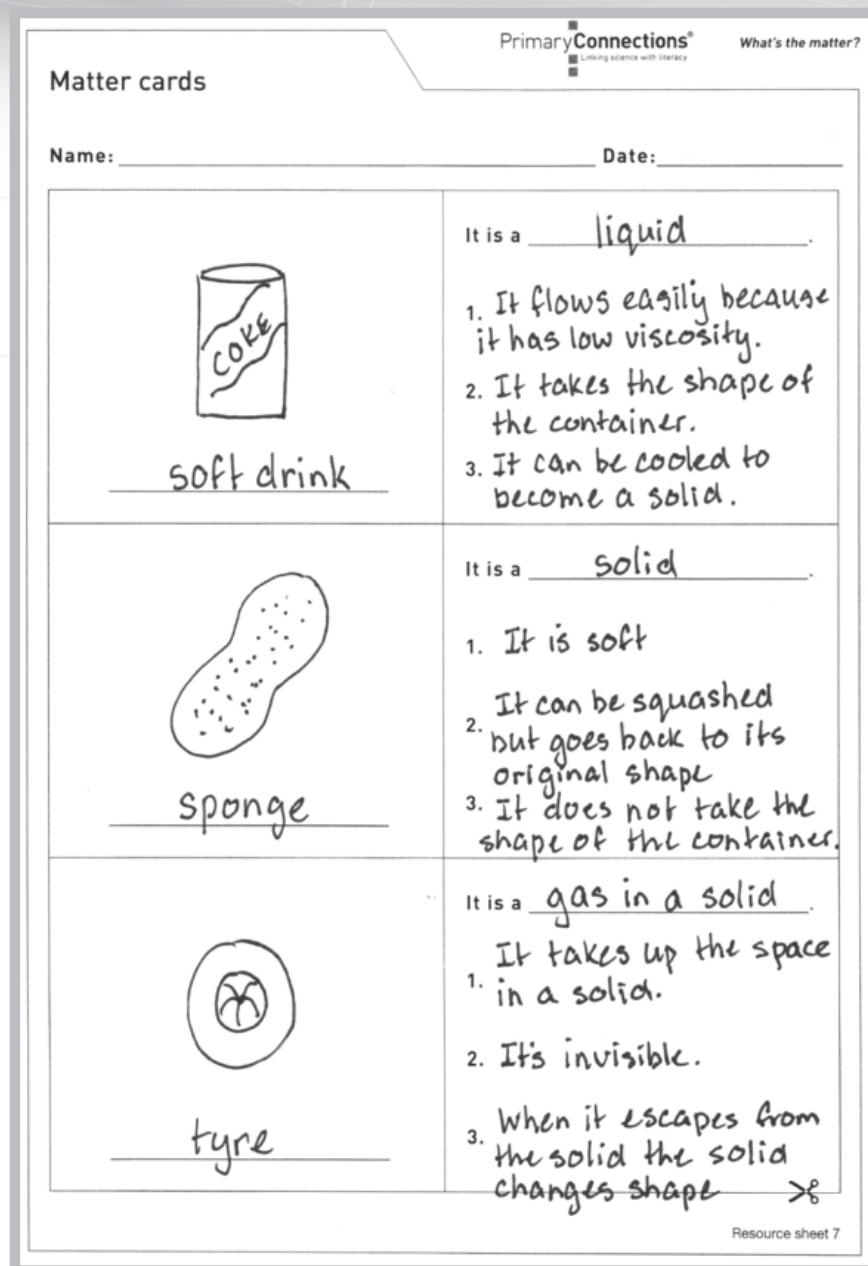 PrimaryConnections®
Linking science with literacy
What's the matter?
Matter cards
Name: Date:
COKE
soft drink
It is a liquid.
1. It flows easily because
it has low viscosity.
2. It takes the shape of
the container.
3. It can be cooled to
become a solid.
sponge
It is a solid.
1. It is soft
2. It can be squashed
but goes back to its
original shape
3. It does not take the
shape of the container.
tyre
It is a gas in a solid.
1. It takes up the space
in a solid.
2. It's invisible.
3. When it escapes from
the solid the solid
changes shape
Resource sheet 7